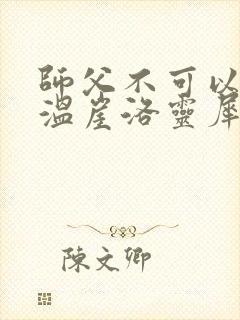 師父不可以
溫崖洛靈犀
陳文卿